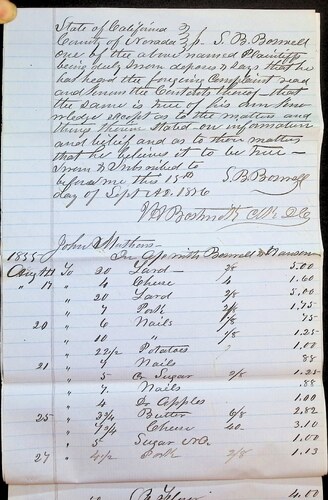 State of California }
County of Nevada } ss. S. B. Boswell
one of the above named Plaintiffs
being duly sworn deposes & says that he
has heard the foregoing Complaint read
and knows the Contents thereof that
the same is true of his own know
ledge except as to the matters and
things therein stated on information
and belief and as to those matters
that he believes it to be true –
Sworn to & subscribed to
before me this 15th S. B. Boswell
day of Sept A.D. 1856
John
In a/c with Boswell & Hanson
1855
Aug 14 To 20 Lard 2/8 5.00
" 17 " 4 Cheese 4 1.60
" 20 Lard 2/8 5.00
" 7 Pork 2/8 1.75
20 " 6 Nails 1/8 .75
" 10 " 1/8 1.25
" 22 1/2 Potatoes 1.00
21 " 7 Nails 88
" 5 Sugar 2/8 1.25
" 7 Nails .88
" 4 Dr Apples 1.00
25 " 3 3/4 Butter 6/8 2.82
" 7 3/4 Cheese 40 3.10
" 5 Sugar 1.00
27 " 4 1/2 Pork 2/8 1.13